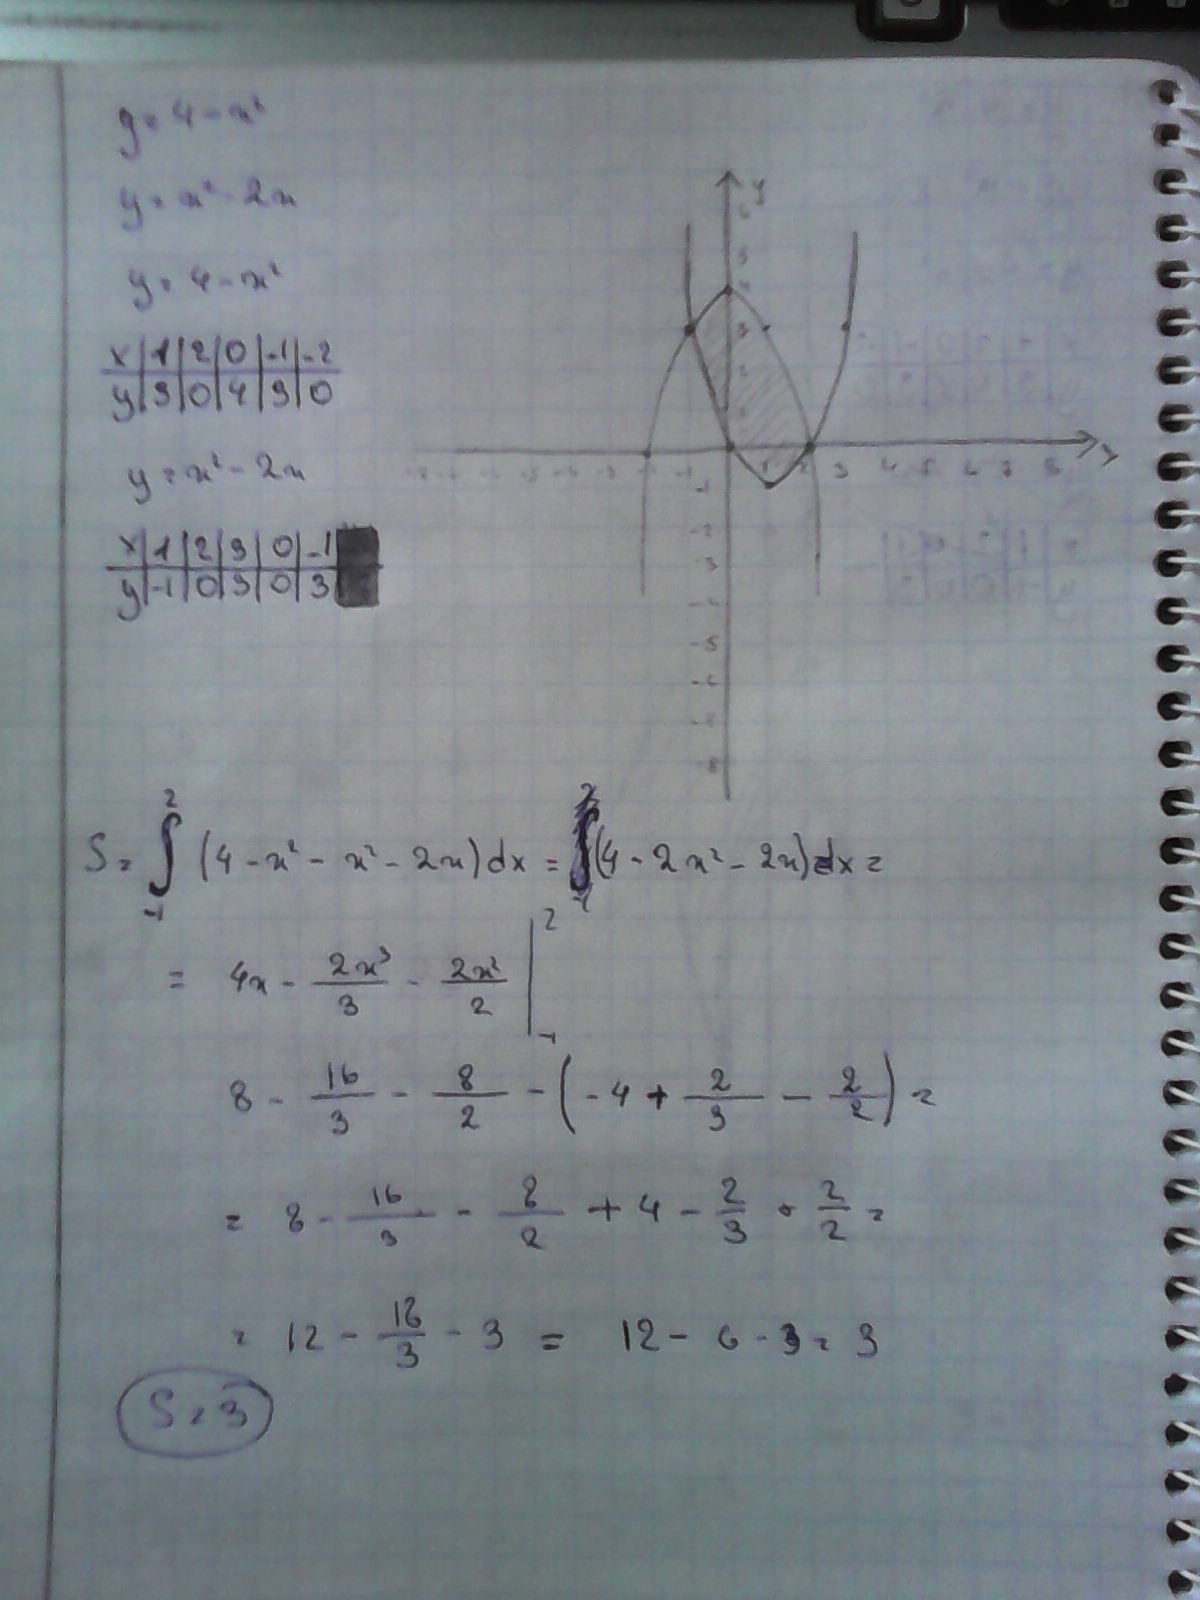 y = 4 - x²
y = x² - 2x
y = 4 - x²
x | 1 | 2 | 0 | -1 | -2
y | 3 | 0 | 4 | 3 | 0
y = x² - 2x
x | 1 | 2 | 3 | 0 | -1
y | -1 | 0 | 3 | 0 | 3
y
5
4
3
2
1
-1 1 2 3 4 5 6 7 8
-1
-2
-3
-4
-5
-6
-7
-8
S = ∫₋₁² (4 - x² - x² - 2x) dx = ∫₋₁² (4 - 2x² - 2x) dx =
= 4x - 2x³/3 - 2x²/2 |₋₁²
8 - 16/3 - 8/2 - (-4 + 2/3 - 2/2) =
= 8 - 16/3 - 8/2 + 4 - 2/3 + 2/2 =
= 12 - 18/3 - 3 = 12 - 6 - 3 = 3
S = 3